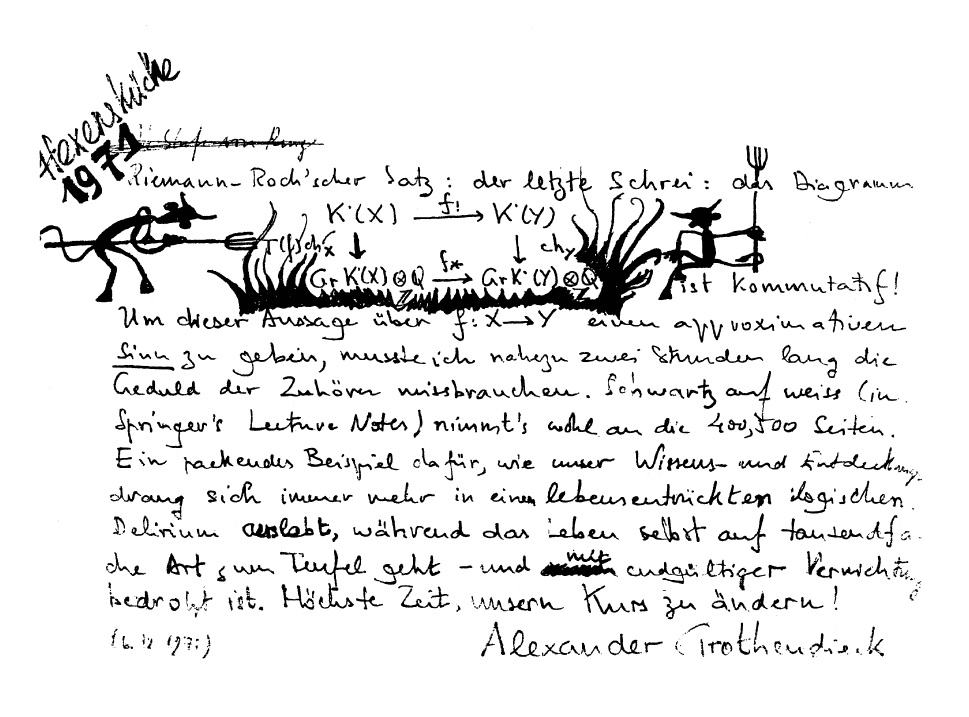 Hexenküche
1971
Riemann-Roch'scher Satz: der letzte Schrei: das Diagramm
K˙(X) f! → K˙(Y)
T(f)ch_X ↓ ↓ ch_Y
Gr K˙(X) ⊗_Z Q f* → Gr K˙(Y) ⊗_Z Q
ist kommutatif!
Um dieser Aussage über f: X → Y einen approximativen
Sinn zu geben, musste ich nahezu zwei Stunden lang die
Geduld der Zuhörer missbrauchen. Schwartz auf weiss (in
Springer's Lecture Notes) nimmt's wohl an die 400, 500 Seiten.
Ein packendes Beispiel dafür, wie unser Wissens- und Entdeckungs-
drang sich immer mehr in einem lebensentrückten logischen
Delirium auslebt, während das Leben selbst auf tausendfa-
che Art zum Teufel geht - und mit endgültiger Vernichtung
bedroht ist. Höchste Zeit, unsern Kurs zu ändern!
Alexander Grothendieck